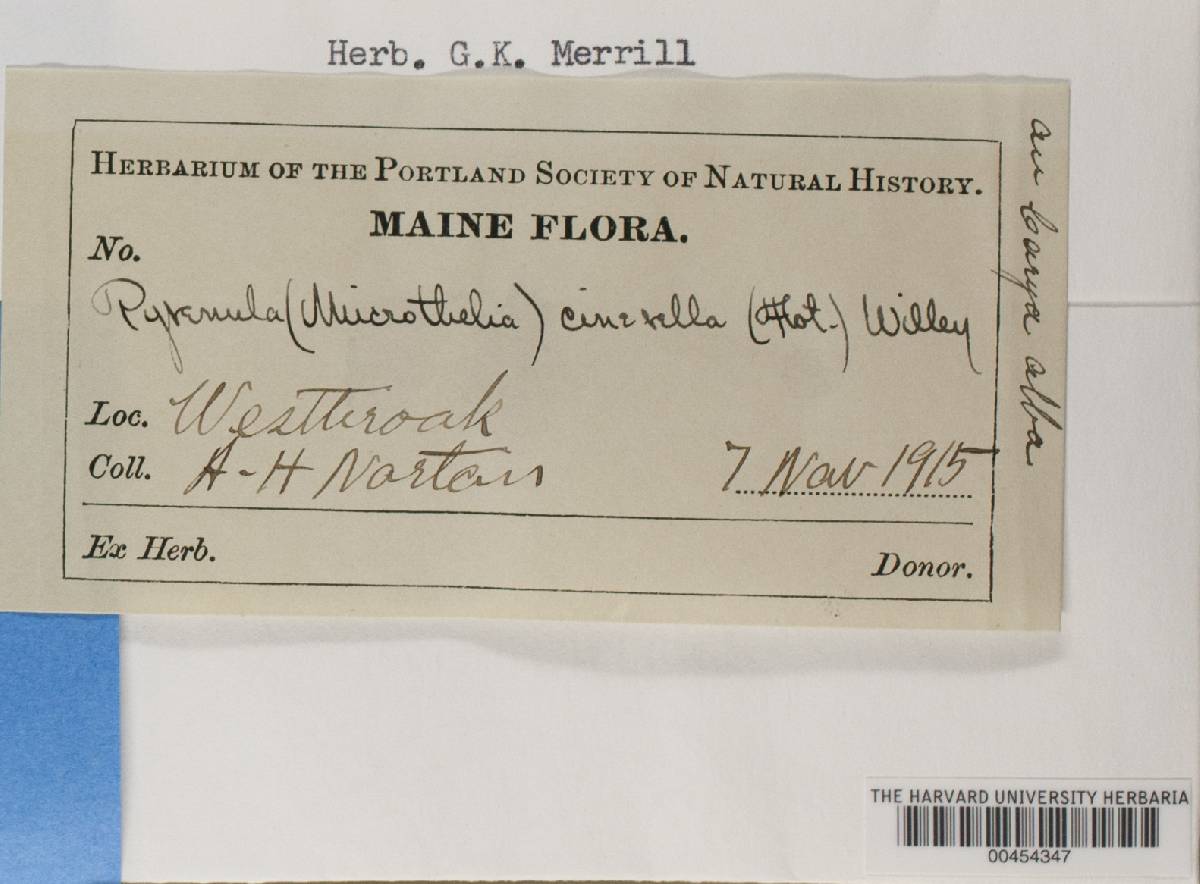 Herb. G.K. Merrill
HERBARIUM OF THE PORTLAND SOCIETY OF NATURAL HISTORY.
MAINE FLORA.
No.
Pyrenula (Microthelia) cinerella (Flot.) Willey
Loc. Westbrook
Coll. A-H Norton 7 Nov 1915
Ex Herb. Donor.
on Carya alba
THE HARVARD UNIVERSITY HERBARIA
00454347